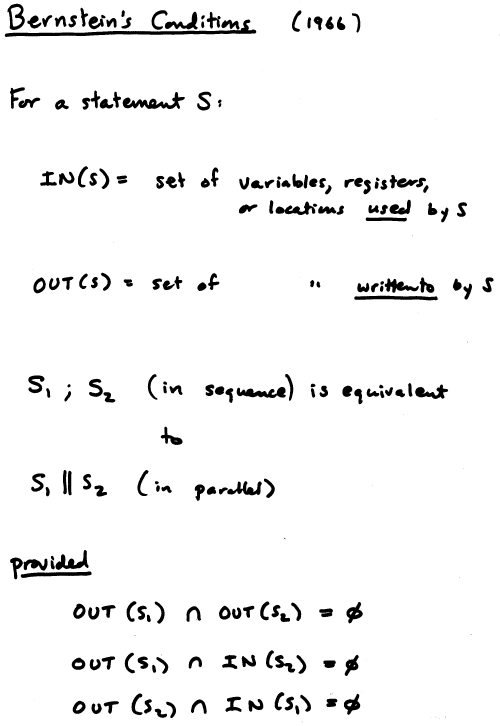 Bernstein's Conditions (1966)
For a statement S:
IN(S) = set of variables, registers,
or locations used by S
OUT(S) = set of " written to by S
S₁ ; S₂ (in sequence) is equivalent
to
S₁ || S₂ (in parallel)
provided
OUT (S₁) ∩ OUT (S₂) = ϕ
OUT (S₁) ∩ IN (S₂) = ϕ
OUT (S₂) ∩ IN (S₁) = ϕ